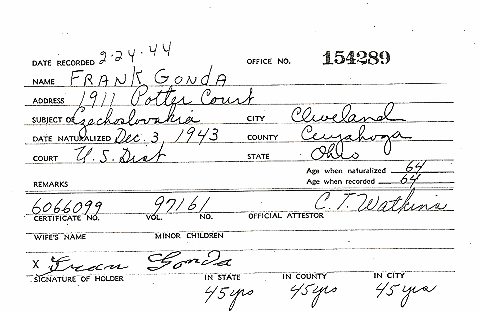 DATE RECORDED 2-24-44 OFFICE NO. 154289
NAME FRANK GONDA
ADDRESS 1911 Potter Court
SUBJECT OF Czechoslovakia CITY Cleveland
DATE NATURALIZED Dec. 3, 1943 COUNTY Cuyahoga
COURT U.S. Dist STATE Ohio
Age when naturalized 64
REMARKS Age when recorded 64
6066099 97161 C. T. Watkins
CERTIFICATE NO. VOL. NO. OFFICIAL ATTESTOR
WIFE'S NAME MINOR CHILDREN
X Fran Gonda
SIGNATURE OF HOLDER IN STATE IN COUNTY IN CITY
45 yrs 45 yrs 45 yrs